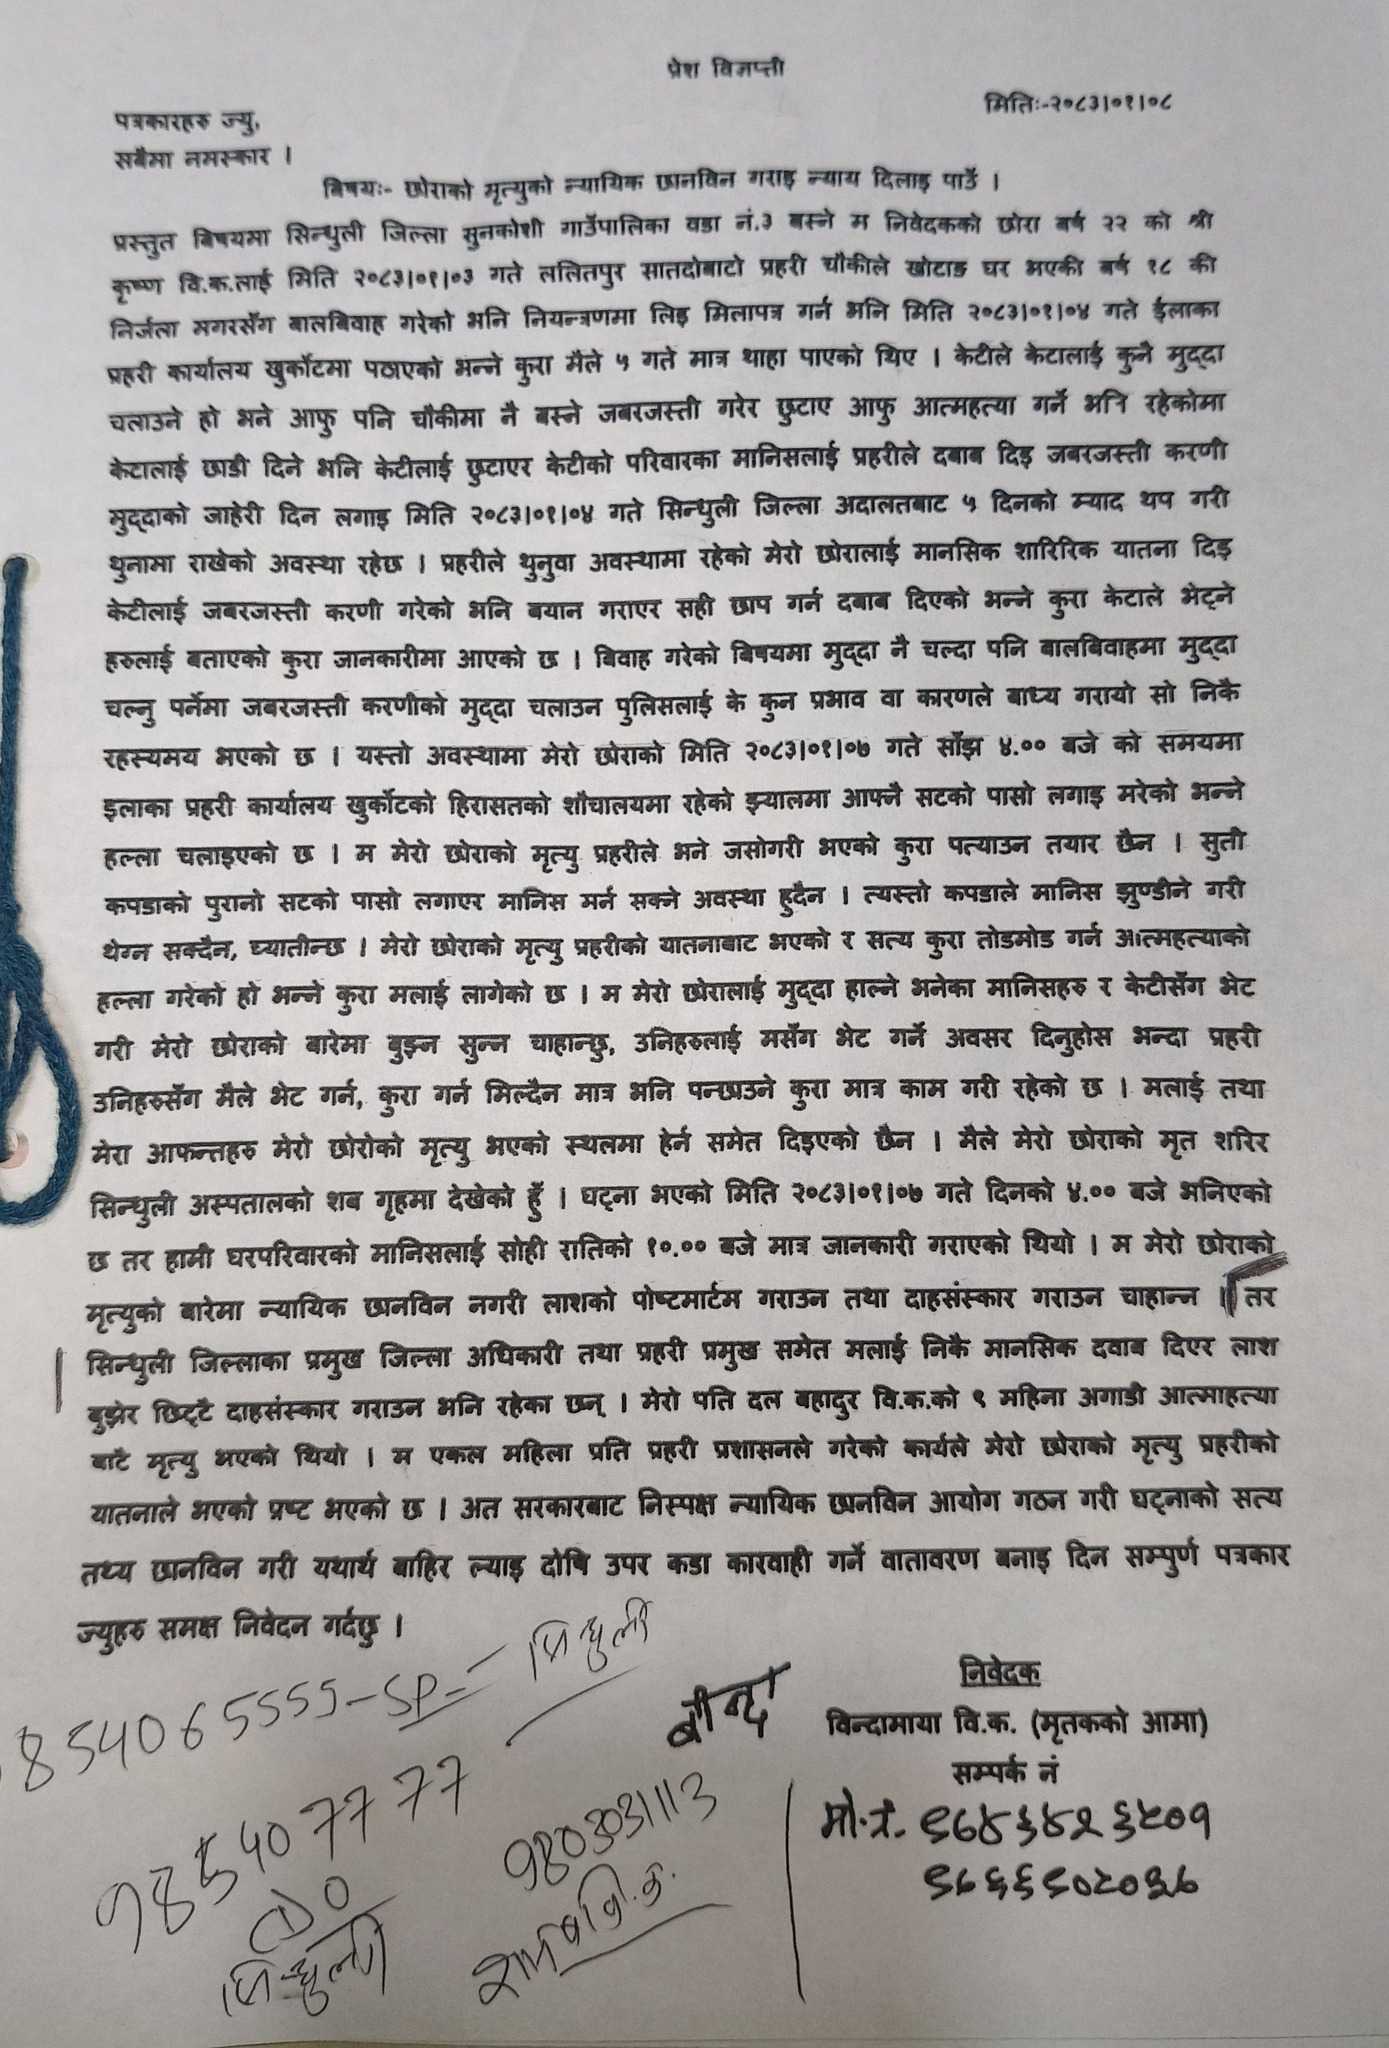 प्रेश विज्ञप्ती
मितिः-२०८३।०१।०८
पत्रकारहरु ज्यु,
सबैमा नमस्कार ।
बिषयः- छोराको मृत्युको न्यायिक छानविन गराइ न्याय दिलाइ पाउँ ।
प्रस्तुत बिषयमा सिन्धुली जिल्ला सुनकोशी गाउँपालिका वडा नं.३ बस्ने म निवेदकको छोरा बर्ष २२ को श्री
कृष्ण वि.क.लाई मिति २०८३।०१।०३ गते ललितपुर सातदोबाटो प्रहरी चौकीले खोटाङ घर भएकी बर्ष १८ की
निर्जला मगरसँग बालबिवाह गरेको भनि नियन्त्रणमा लिइ मिलापत्र गर्न भनि मिति २०८३।०१।०४ गते ईलाका
प्रहरी कार्यालय खुर्कोटमा पठाएको भन्ने कुरा मैले ५ गते मात्र थाहा पाएको थिए । केटीले केटालाई कुनै मुद्दा
चलाउने हो भने आफु पनि चौकीमा नै बस्ने जबरजस्ती गरेर छुटाए आफु आत्महत्या गर्ने भनि रहेकोमा
केटालाई छाडी दिने भनि केटीलाई छुटाएर केटीको परिवारका मानिसलाई प्रहरीले दबाब दिइ जबरजस्ती करणी
मुद्दाको जाहेरी दिन लगाइ मिति २०८३।०१।०४ गते सिन्धुली जिल्ला अदालतबाट ५ दिनको म्याद थप गरी
थुनामा राखेको अवस्था रहेछ । प्रहरीले थुनुवा अवस्थामा रहेको मेरो छोरालाई मानसिक शारिरिक यातना दिइ
केटीलाई जबरजस्ती करणी गरेको भनि बयान गराएर सही छाप गर्न दबाब दिएको भन्ने कुरा केटाले भेट्ने
हरुलाई बताएको कुरा जानकारीमा आएको छ । बिवाह गरेको बिषयमा मुद्दा नै चल्दा पनि बालबिवाहमा मुद्दा
चल्नु पर्नेमा जबरजस्ती करणीको मुद्दा चलाउन पुलिसलाई के कुन प्रभाव वा कारणले बाध्य गरायो सो निकै
रहस्यमय भएको छ । यस्तो अवस्थामा मेरो छोराको मिति २०८३।०१।०७ गते साँझ ४.०० बजे को समयमा
इलाका प्रहरी कार्यालय खुर्कोटको हिरासतको शौचालयमा रहेको झ्यालमा आफ्नै सटको पासो लगाइ मरेको भन्ने
हल्ला चलाइएको छ । म मेरो छोराको मृत्यु प्रहरीले भने जसोगरी भएको कुरा पत्याउन तयार छैन । सुती
कपडाको पुरानो सटको पासो लगाएर मानिस मर्न सक्ने अवस्था हुदैन । त्यस्तो कपडाले मानिस झुण्डीने गरी
थेग्न सक्दैन, च्यातीन्छ । मेरो छोराको मृत्यु प्रहरीको यातनाबाट भएको र सत्य कुरा तोडमोड गर्न आत्महत्याको
हल्ला गरेको हो भन्ने कुरा मलाई लागेको छ । म मेरो छोरालाई मुद्दा हाल्ने भनेका मानिसहरु र केटीसँग भेट
गरी मेरो छोराको बारेमा बुझ्न सुन्न चाहान्छु, उनिहरुलाई मसँग भेट गर्ने अवसर दिनुहोस भन्दा प्रहरी
उनिहरुसँग मैले भेट गर्न, कुरा गर्न मिल्दैन मात्र भनि पन्छाउने कुरा मात्र काम गरी रहेको छ । मलाई तथा
मेरा आफन्तहरु मेरो छोरोको मृत्यु भएको स्थलमा हेर्न समेत दिइएको छैन । मैले मेरो छोराको मृत शरिर
सिन्धुली अस्पतालको शब गृहमा देखेको हुँ । घट्ना भएको मिति २०८३।०१।०७ गते दिनको ४.०० बजे भनिएको
छ तर हामी घरपरिवारको मानिसलाई सोही रातिको १०.०० बजे मात्र जानकारी गराएको थियो । म मेरो छोराको
मृत्युको बारेमा न्यायिक छानविन नगरी लाशको पोष्टमार्टम गराउन तथा दाहसंस्कार गराउन चाहान्न । तर
सिन्धुली जिल्लाका प्रमुख जिल्ला अधिकारी तथा प्रहरी प्रमुख समेत मलाई निकै मानसिक दवाब दिएर लाश
बुझेर छिट्टै दाहसंस्कार गराउन भनि रहेका छन् । मेरो पति दल बहादुर वि.क.को ९ महिना अगाडी आत्माहत्या
बाटै मृत्यु भएको थियो । म एकल महिला प्रति प्रहरी प्रशासनले गरेको कार्यले मेरो छोराको मृत्यु प्रहरीको
यातनाले भएको प्रष्ट भएको छ । अत सरकारबाट निस्पक्ष न्यायिक छानविन आयोग गठन गरी घट्नाको सत्य
तथ्य छानविन गरी यथार्थ बाहिर ल्याइ दोषि उपर कडा कारवाही गर्ने वातावरण बनाइ दिन सम्पुर्ण पत्रकार
ज्युहरु समक्ष निवेदन गर्दछु ।
854065555-SP= सिन्धुली
निवेदक
बीन्दा
विन्दामाया वि.क. (मृतकको आमा)
सम्पर्क नं
9854077777
CDO
सिन्धुली
9803031113